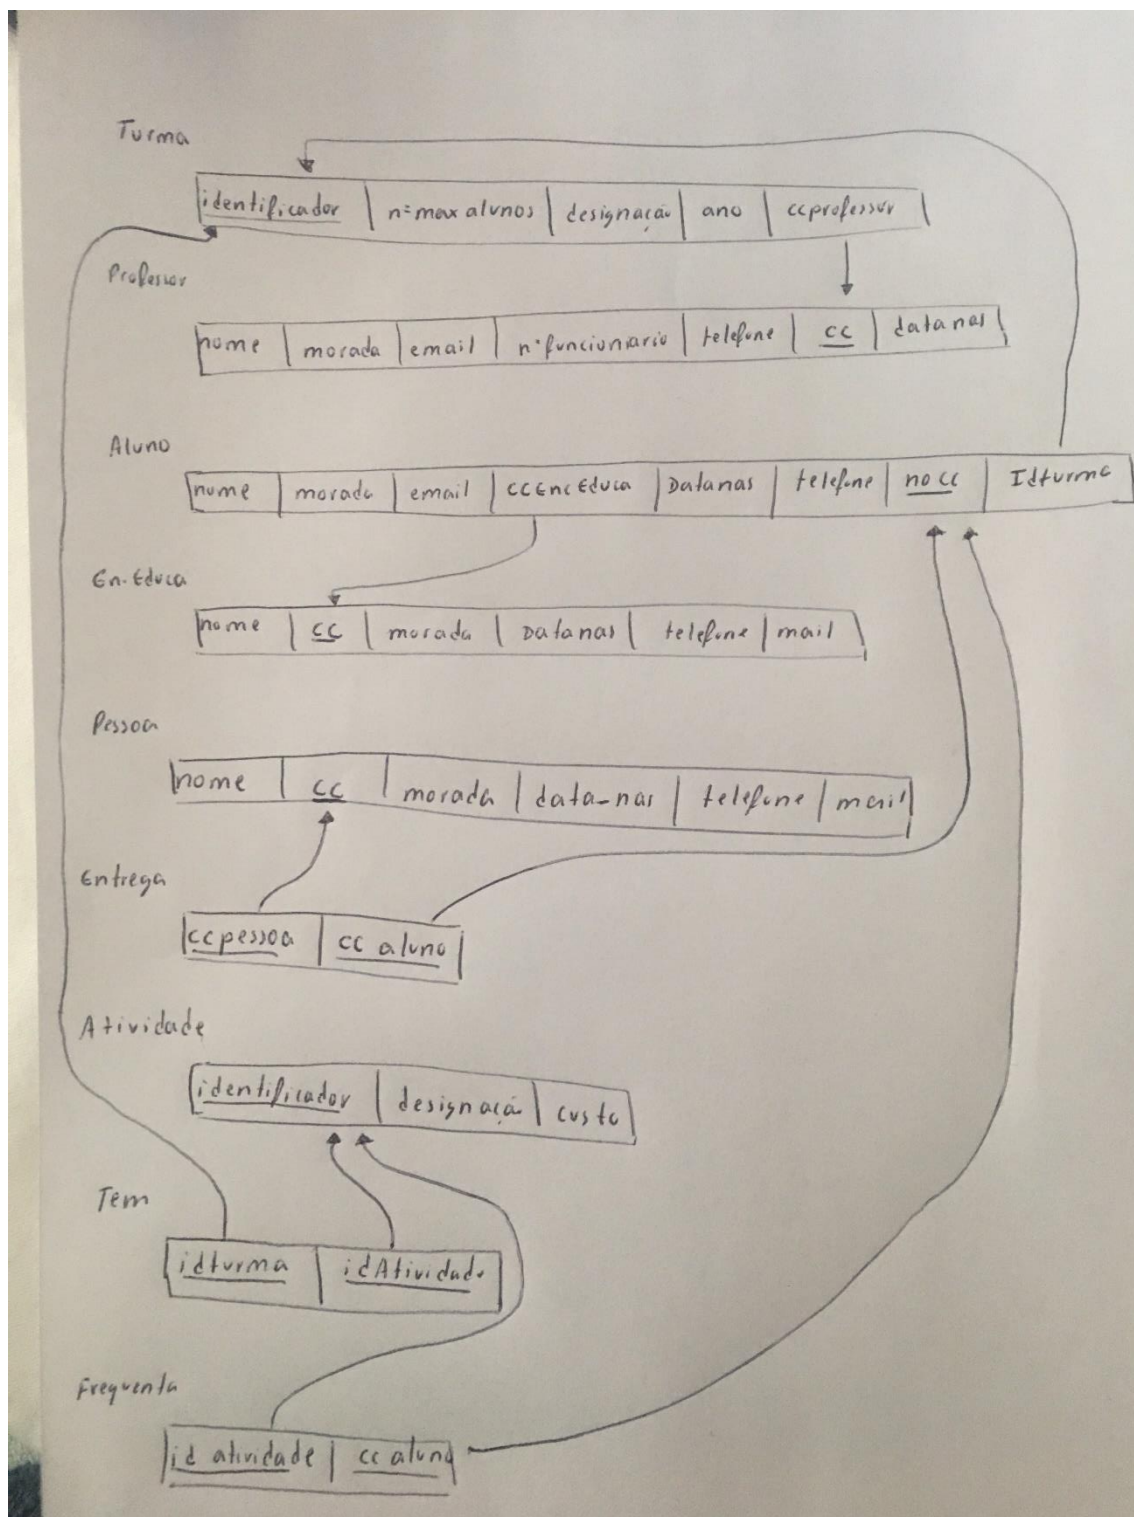 Turma
identificador n=max alunos designação ano ccprofessor
Professor
nome morada email nºfuncionario telefone cc datanas
Aluno
nome morada email CCEncEduca Datanas telefone no cc Idturma
En.Educa
nome cc morada Datanas telefone mail
Pessoa
nome cc morada data-nas telefone mail
Entrega
ccpessoa cc aluno
Atividade
identificador designação custo
Tem
idturma idAtividade
Frequenta
id atividade cc aluno